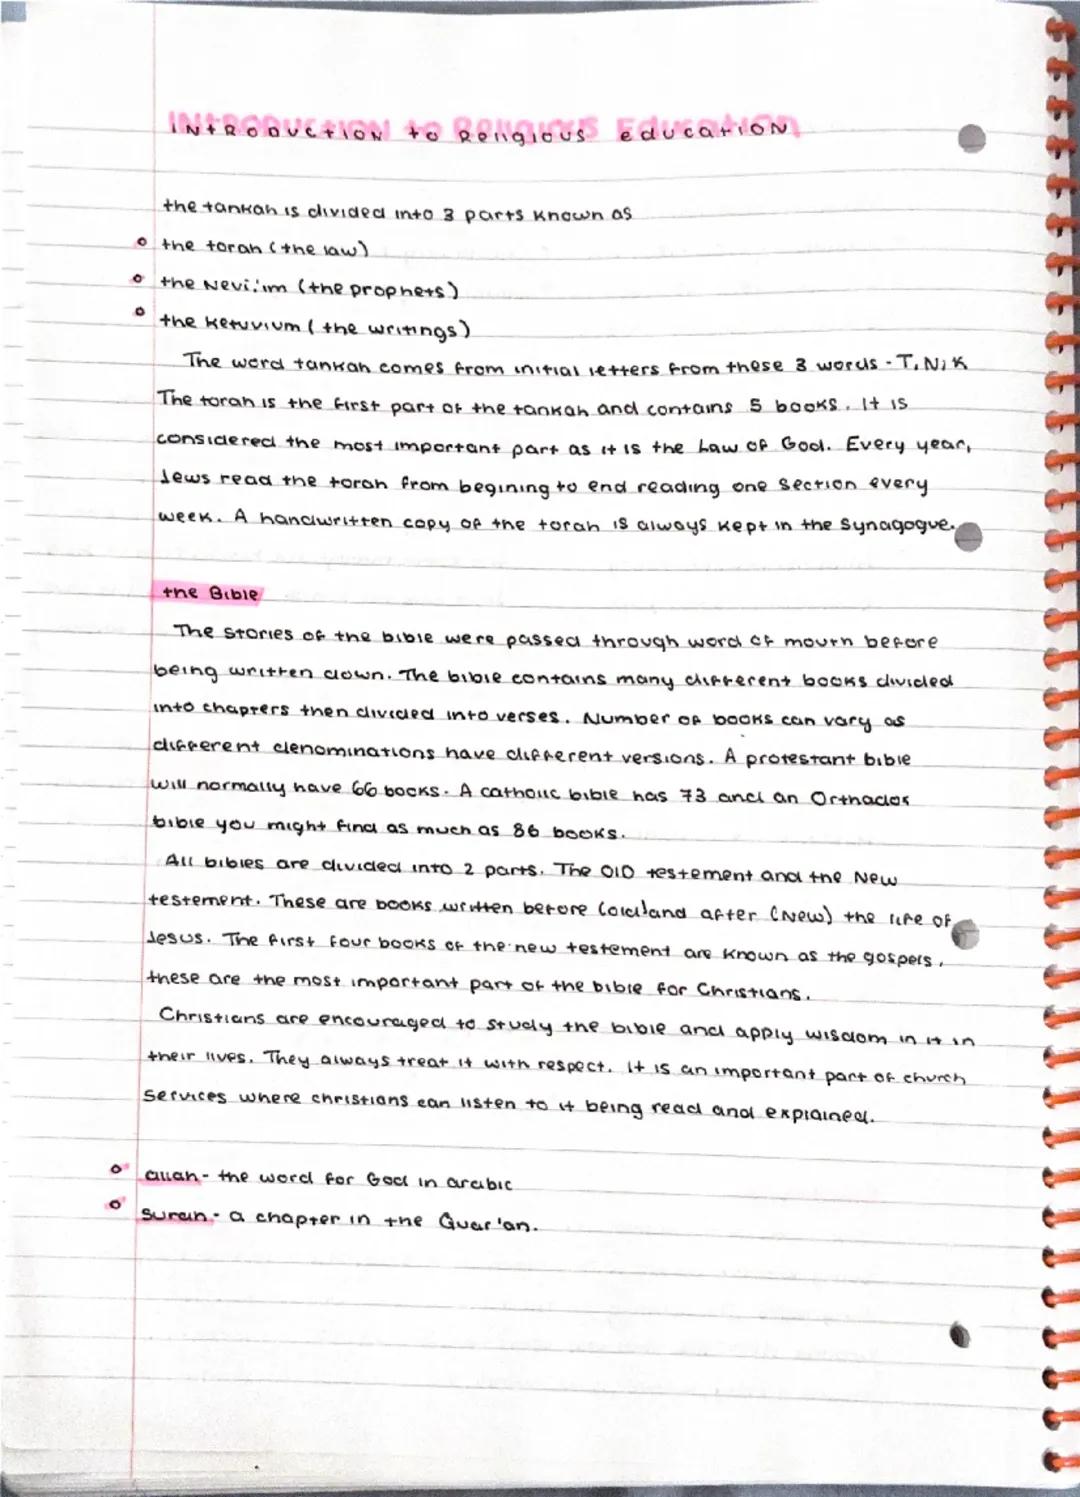 INtRODUCtION to Religious Education
the tankah is divided into 3 parts known as
the torah (the law)
the Nevi:im (the prophets)
the ketuvium (the writings)
The word tankah comes from initial letters from these 3 words - T, N, K
The torah is the first part of the tankah and contains 5 books. It is
considered the most important part as it is the Law of God. Every year,
Jews read the torah from begining to end reading one section every
week. A handwritten copy of the torah is always kept in the synagogue.
the Bible
The stories of the bible were passed through word of mouth before
being written down. The bible contains many different books divided
into chapters then divided into verses. Number of books can vary as
different denominations have different versions. A protestant bible
will normally have 66 books. A catholic bible has 73 and an Orthadox
bible you might find as much as 86 books.
All bibles are divided into 2 parts. The Old testement and the New
testement. These are books written before (old) and after (New) the life of
Jesus. The first four books of the new testement are known as the gospels,
these are the most important part of the bible for Christians.
Christians are encouraged to study the bible and apply wisdom in it in
their lives. They always treat it with respect. It is an important part of church
services where christians can listen to it being read and explained.
allah - the word for God in arabic
surah - a chapter in the Quar'an.